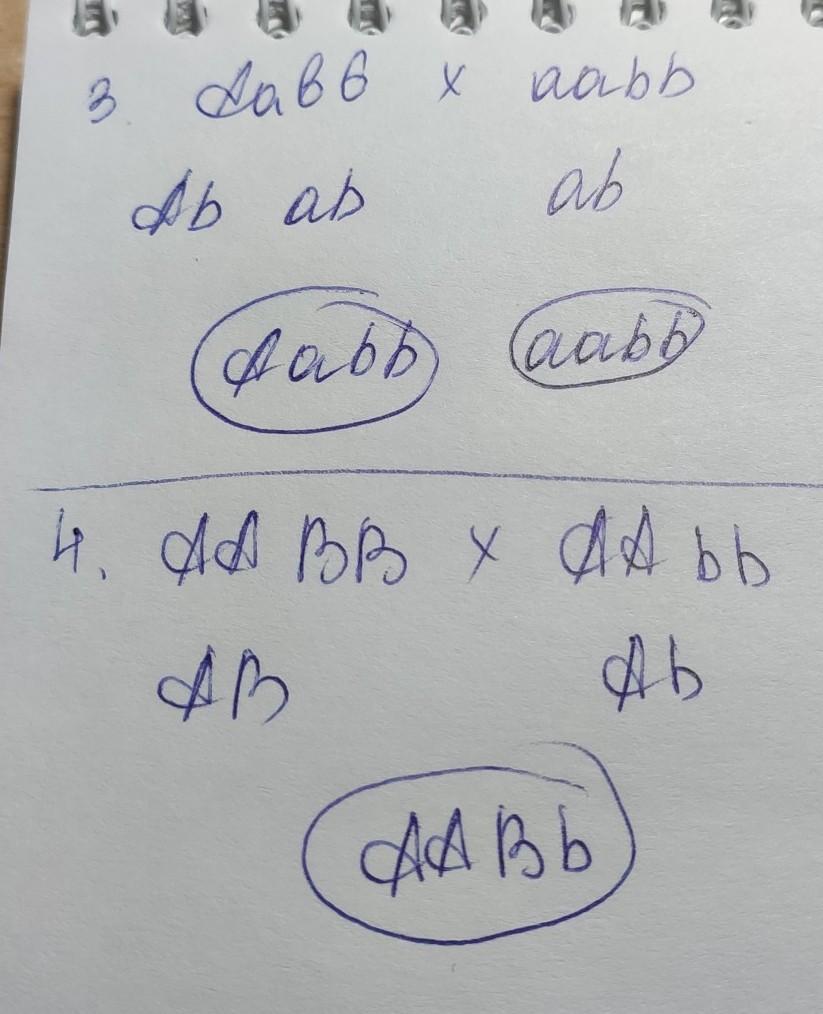 3 Aabb x aabb
Ab ab ab
Aabb aabb
4. AA BB x AA bb
AB Ab
AABb